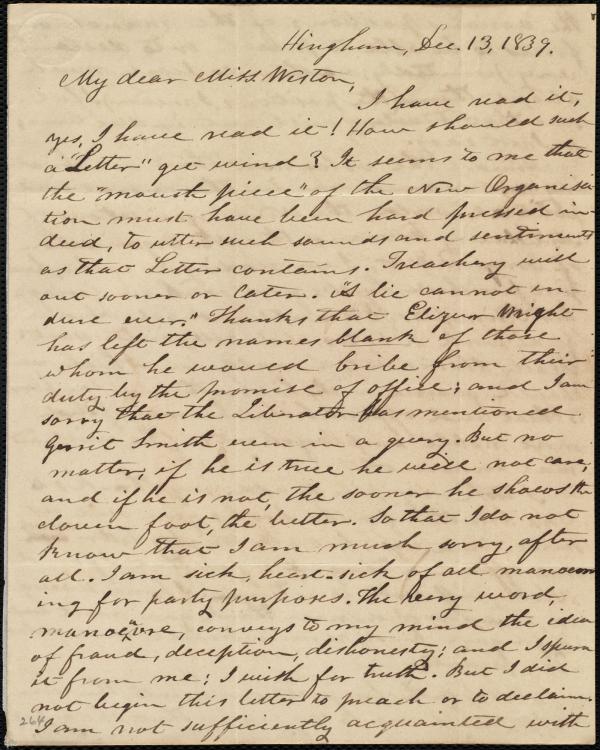 Hingham, Dec. 13, 1839.
My dear Miss Weston,
I have read it,
yes, I have read it! How should such
a "Letter" get wind? It seems to me that
the "mouth piece" of the New Organisa-
tion must have been hard pressed in-
deed, to utter such sounds and sentiments
as that Letter contains. Treachery will
out sooner or later. "A lie cannot en-
dure ever." Thanks that Elizur Wright
has left the names blank of those
whom he would bribe from their
duty by the promise of office; and I am
sorry that the Liberator has mentioned
Gerrit Smith even in a query. But no
matter; if he is true he will not care,
and if he is not, the sooner he shows the
cloven foot, the better. So that I do not
know that I am much sorry, after
all. I am sick, heart-sick of all manoeuv
ing for party purposes. The very word,
manoeuvre, conveys to my mind the idea
of fraud, deception, dishonesty; and I spurn
it from me; I wish for truth. But I did
not begin this letter to preach or to declaim.
I am not sufficiently acquainted with
264